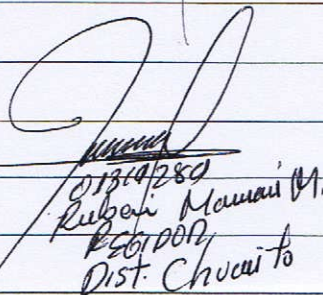 01319280
Ruben Mamani M.
REGIDOR
Dist. Chucuito